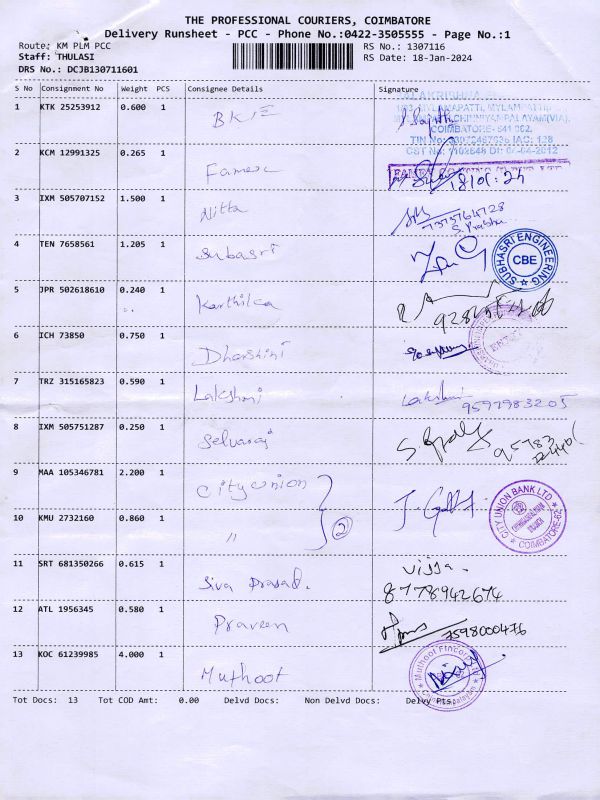 THE PROFESSIONAL COURIERS, COIMBATORE
Delivery Runsheet - PCC - Phone No.:0422-3505555 - Page No.:1
Route: KM PLM PCC
RS No.: 1307116
Staff: THULASI
RS Date: 18-Jan-2024
DRS No.: DCJB130711601
S No Consignment No Weight PCS Consignee Details Signature
1 KTK 25253912 0.600 1
COIMBATORE- 641 062.
2 KCM 12991325 0.265 1 Famesc
18/01/24
3 IXM 505707152 1.500 1 Nitta
7373764728
S. Prabhu
4 TEN 7658561 1.205 1 Subasri
SUBHASRI ENGINEERING
CBE
5 JPR 502618610 0.240 1 Karthika
6 ICH 73850 0.750 1 Dharshini
7 TRZ 315165823 0.590 1 Lakshmi Lakshmi
9597983205
8 IXM 505751287 0.250 1 Selvaraj
9 MAA 105346781 2.200 1 City union
CITY UNION BANK LTD
COIMBATORE-62
10 KMU 2732160 0.860 1 " 2
11 SRT 681350266 0.615 1 Siva Prasad.
8778942674
12 ATL 1956345 0.580 1 Praveen
7598000476
13 KOC 61239985 4.000 1 Muthoot
Muthoot Fincorp
Tot Docs: 13 Tot COD Amt: 0.00 Delvd Docs: Non Delvd Docs: Delvy Pts: